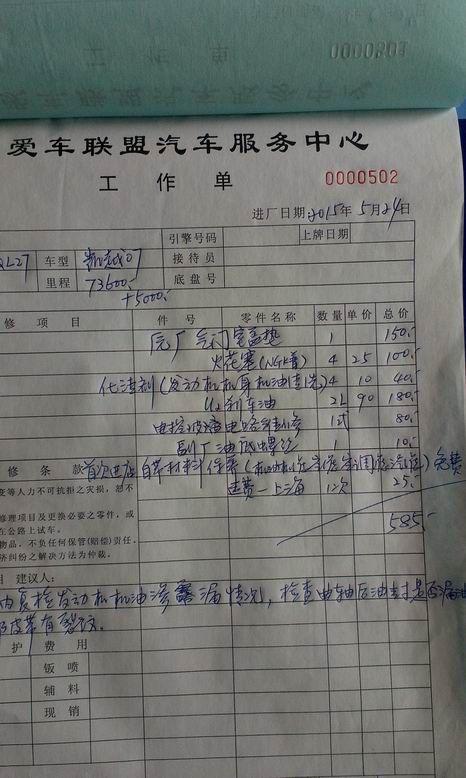 0000501
工作单
爱车联盟汽车服务中心
工作单 0000502
进厂日期 2015年5月24日
引擎号码 上牌日期
2L27 车型 凯越07 接待员
里程 73600 底盘号
+5000
修项目 件号 零件名称 数量 单价 总价
原厂气门室盖垫 1 150
火花塞(NGK普) 4 25 100
化清剂(发动机机身机油清洗) 4 10 40
刹车油 2L 90 180
电控 电路维修 1式 80
副厂油底螺丝 1 10
修条款 首次进店自带材料保养 免费
变等人力不可抗拒之灾损,恕不
运费-上海 1次 25
修理项目及更换必要之零件,或
在公路上试车。
585
物品,不负任何保管(赔偿)责任。
济纠纷之解决方法为仲裁。
目 建议人:
内复检发动机机油渗漏情况,检查曲轴后油封是否漏油
皮带有裂纹。
护费用
钣喷
辅料
现销